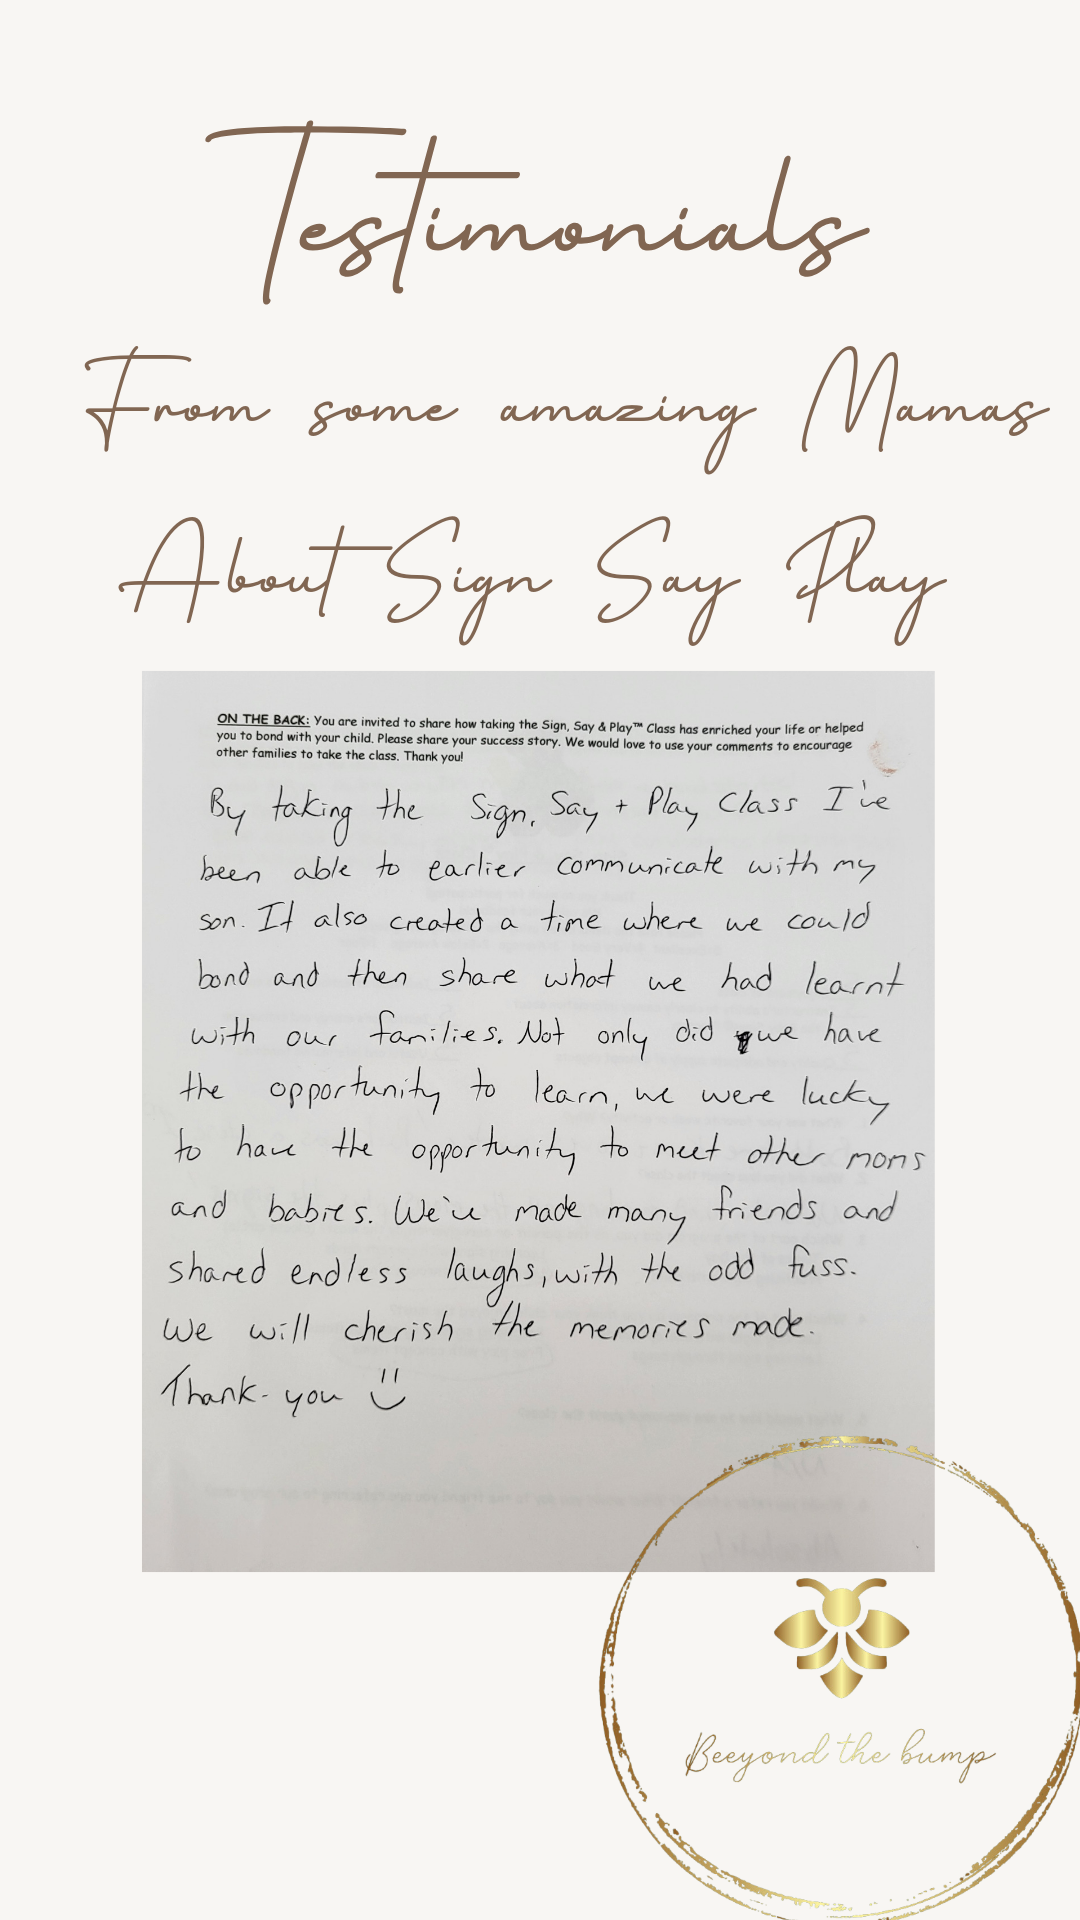 Testimonials
From some amazing Mamas
About Sign Say Play
ON THE BACK: You are invited to share how taking the Sign, Say & Play™ Class has enriched your life or helped
you to bond with your child. Please share your success story. We would love to use your comments to encourage
other families to take the class. Thank you!
By taking the Sign, Say + Play Class I've
been able to earlier communicate with my
son. It also created a time where we could
bond and then share what we had learnt
with our families. Not only did we have
the opportunity to learn, we were lucky
to have the opportunity to meet other moms
and babies. We've made many friends and
shared endless laughs, with the odd fuss.
We will cherish the memories made.
Thank-you
Beeyond the bump